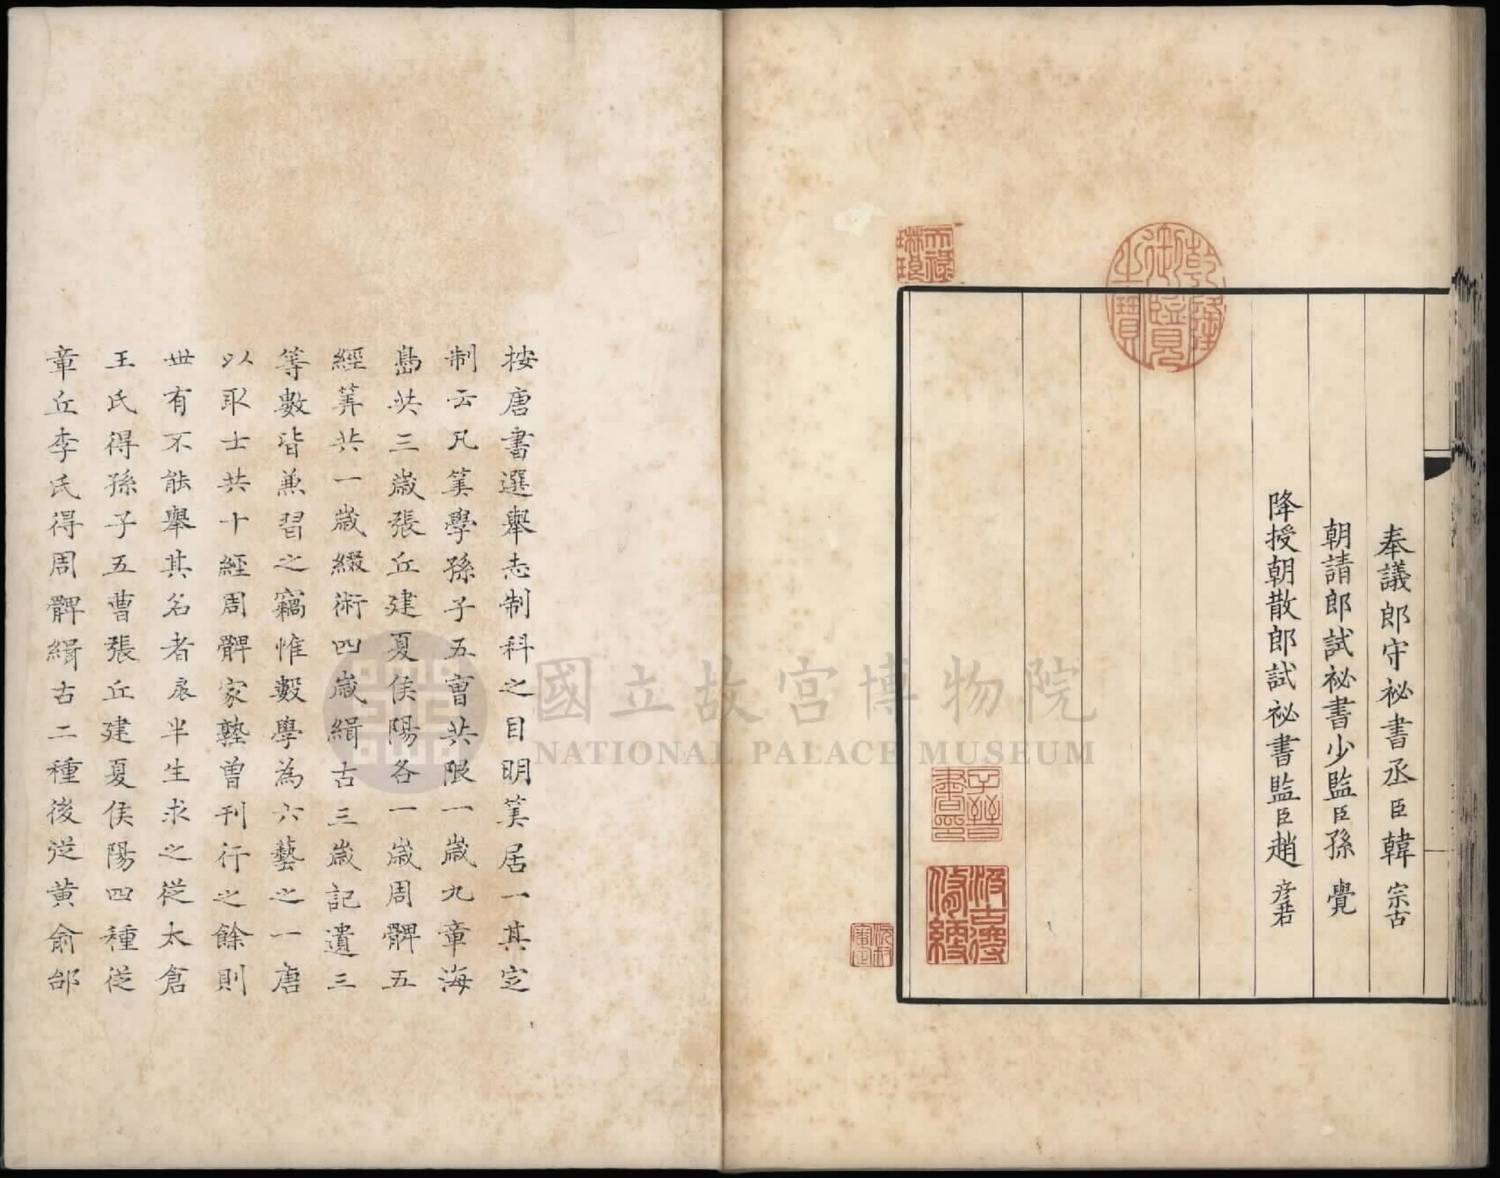 奉議郎守祕書丞臣韓宗古
朝請郎試祕書少監臣孫覺
降授朝散郎試祕書監臣趙彦若
乾隆御覽之寶
天祿琳琅
子晉書印
汲古後人
按唐書選舉志制科之目明筭居一其定
制云凡筭學孫子五曹共限一歲九章海
島共三歲張丘建夏侯陽各一歲周髀五
經筭共一歲綴術四歲緝古三歲記遺三
等數皆兼習之竊惟數學為六藝之一唐
以取士共十經周髀家塾曾刊行之餘則
世有不能舉其名者扆半生求之從太倉
王氏得孫子五曹張丘建夏侯陽四種從
章丘李氏得周髀緝古二種後從黃俞邰
國立故宮博物院
NATIONAL PALACE MUSEUM